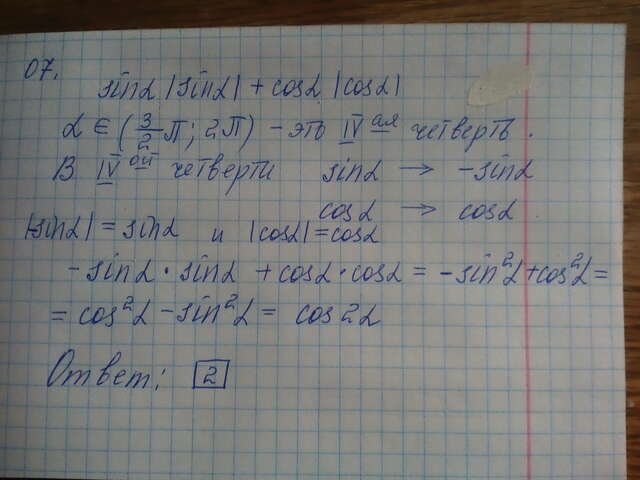 07.
sinα |sinα| + cosα |cosα|
α ∈ (3/2 П; 2П) – это IV ая четверть.
В IV ой четверти sinα → -sinα
cosα → cosα
|sinα| = sinα и |cosα| = cosα
-sinα · sinα + cosα · cosα = -sin²α + cos²α =
= cos²α - sin²α = cos2α
Ответ: 2